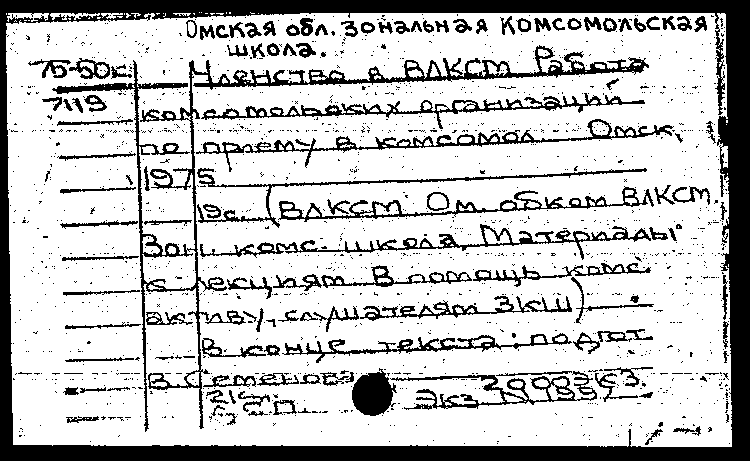 Омская обл. зональная комсомольская
школа.
75-50к. Членство в ВЛКСМ Работа
7119 комсомольских организаций
по приему в комсомол. Омск,
1975
19с. (ВЛКСМ Ом. обком ВЛКСМ.
Зон. комс. школа. Материалы
к лекциям В помощь комс.
активу, слушателям ЗКШ).
В конце текста: подгот
В. Семенова 2000экз.
Экз N 1997